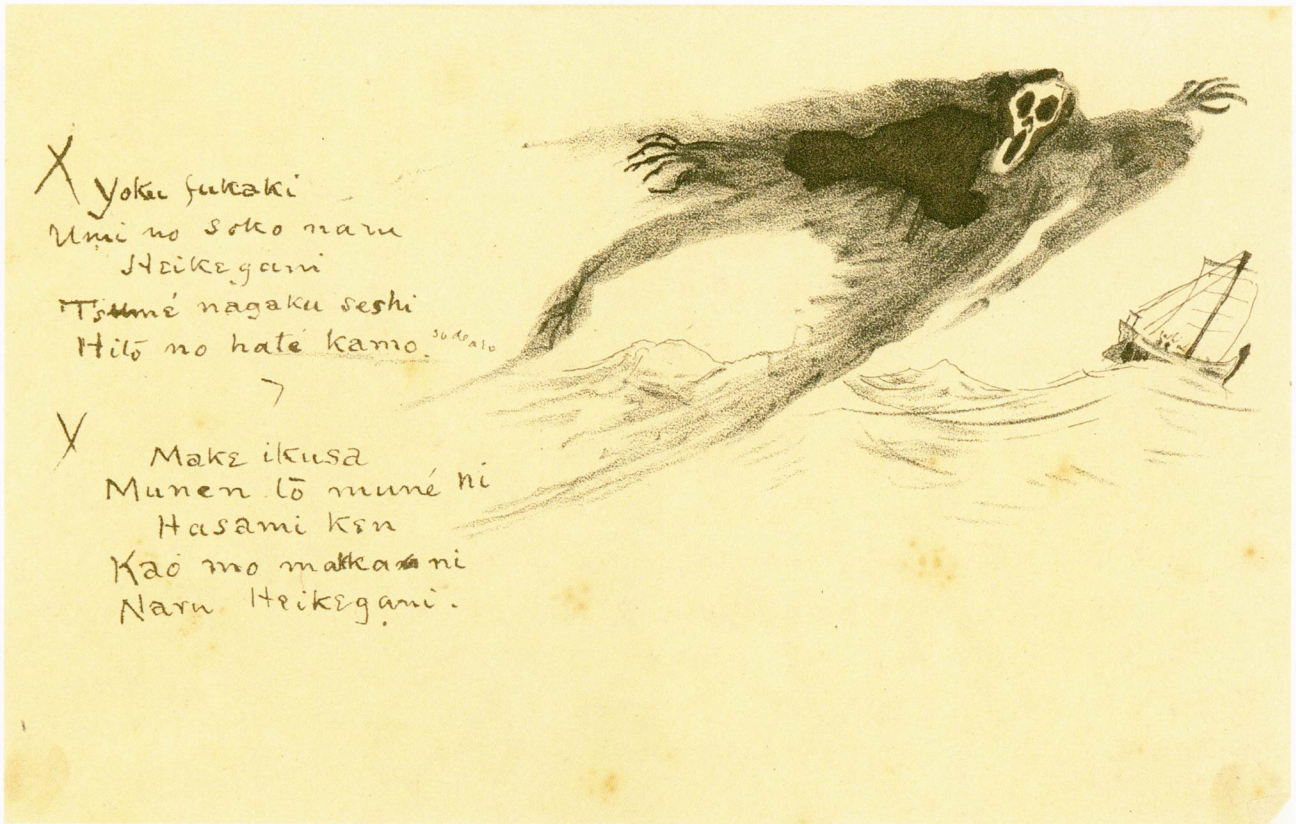 X Yoku fukaki
Umi no soko naru
Heikegani
Tsumé nagaku seshi
Hito no haté kamo.
Y
Make ikusa
Munen to muné ni
Hasami ken
Kao mo makka ni
Naru Heikegani.